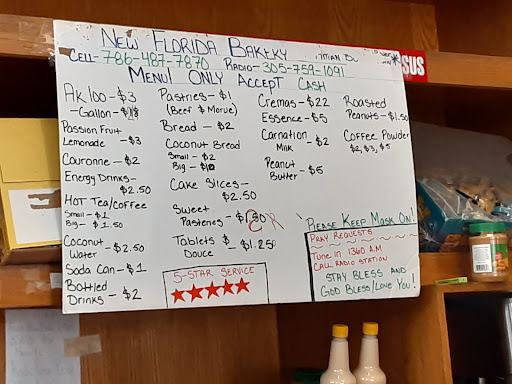 New Florida Bakery
Cell-786-487-7870 Radio-305-759-1091
Menu Only Accept Cash
SUS
AK100-$3
-Gallon-$18
Passion Fruit
Lemonade -$3
Couronne -$2
Energy Drinks-
$2.50
Hot Tea/Coffee
Small-$1
Big-$1.50
Coconut -$2.50
Water
Soda Can-$1
Bottled
Drinks -$2
Pastries-$1
(Beef & Morue)
Bread -$2
Coconut Bread
Small-$2
Big-$10
Cake Slices-
$2.50
Sweet
Pasteries-
Tablets $
Douce -$1.25
5-Star Service
Cremas-$22
Essence-$5
Carnation
Milk -$2
Peanut
Butter-$5
Roasted
Peanuts-$1.50
Coffee Powder
$2, $3, $5
Please Keep Mask On!
Pray Requests
Tune in 1360 A.M
Call Radio Station
Stay Bless and
God Bless/Love You!